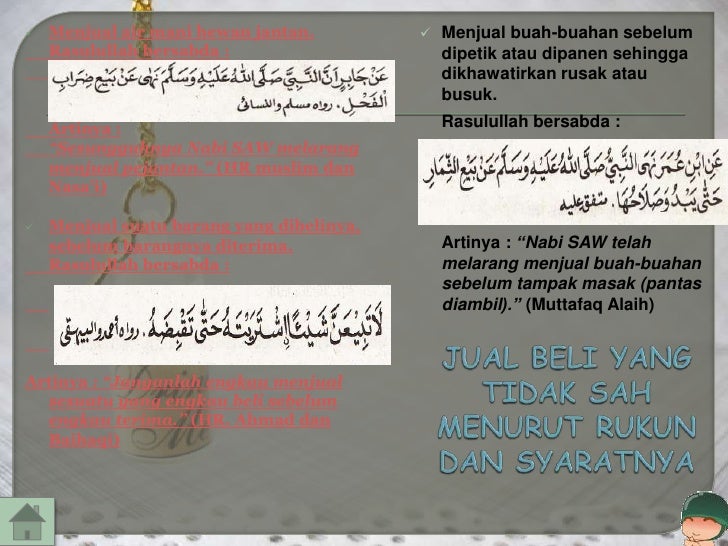 Menjual air mani hewan jantan.
Rasulullah bersabda :
عَنْ جَابِرٍ أَنَّ النَّبِيَّ صَلَّى اللهُ عَلَيْهِ وَسَلَّمَ نَهَى عَنْ بَيْعِ ضِرَابِ
الْفَحْلِ. رواه مسلم والنسائى
Artinya :
“Sesungguhnya Nabi SAW melarang
menjual pejantan.” (HR muslim dan
Nasa’i)
Menjual suatu barang yang dibelinya,
sebelum barangnya diterima.
Rasulullah bersabda :
لَا تَبِيْعَنَّ شَيْئًا اِشْتَرَيْتَهُ حَتَّى تَقْبِضَهُ. رواه احمد والبيهقى
Artinya : “Janganlah engkau menjual
sesuatu yang engkau beli sebelum
engkau terima.” (HR. Ahmad dan
Baihaqi)
✓ Menjual buah-buahan sebelum
dipetik atau dipanen sehingga
dikhawatirkan rusak atau
busuk.
Rasulullah bersabda :
عَنِ ابْنِ عُمَرَ نَهَى النَّبِيُّ صَلَّى اللهُ عَلَيْهِ وَسَلَّمَ عَنْ بَيْعِ الثِّمَارِ
حَتَّى يَبْدُوَ صَلَاحُهَا. متفق عليه
Artinya : “Nabi SAW telah
melarang menjual buah-buahan
sebelum tampak masak (pantas
diambil).” (Muttafaq Alaih)
JUAL BELI YANG
TIDAK SAH
MENURUT RUKUN
DAN SYARATNYA